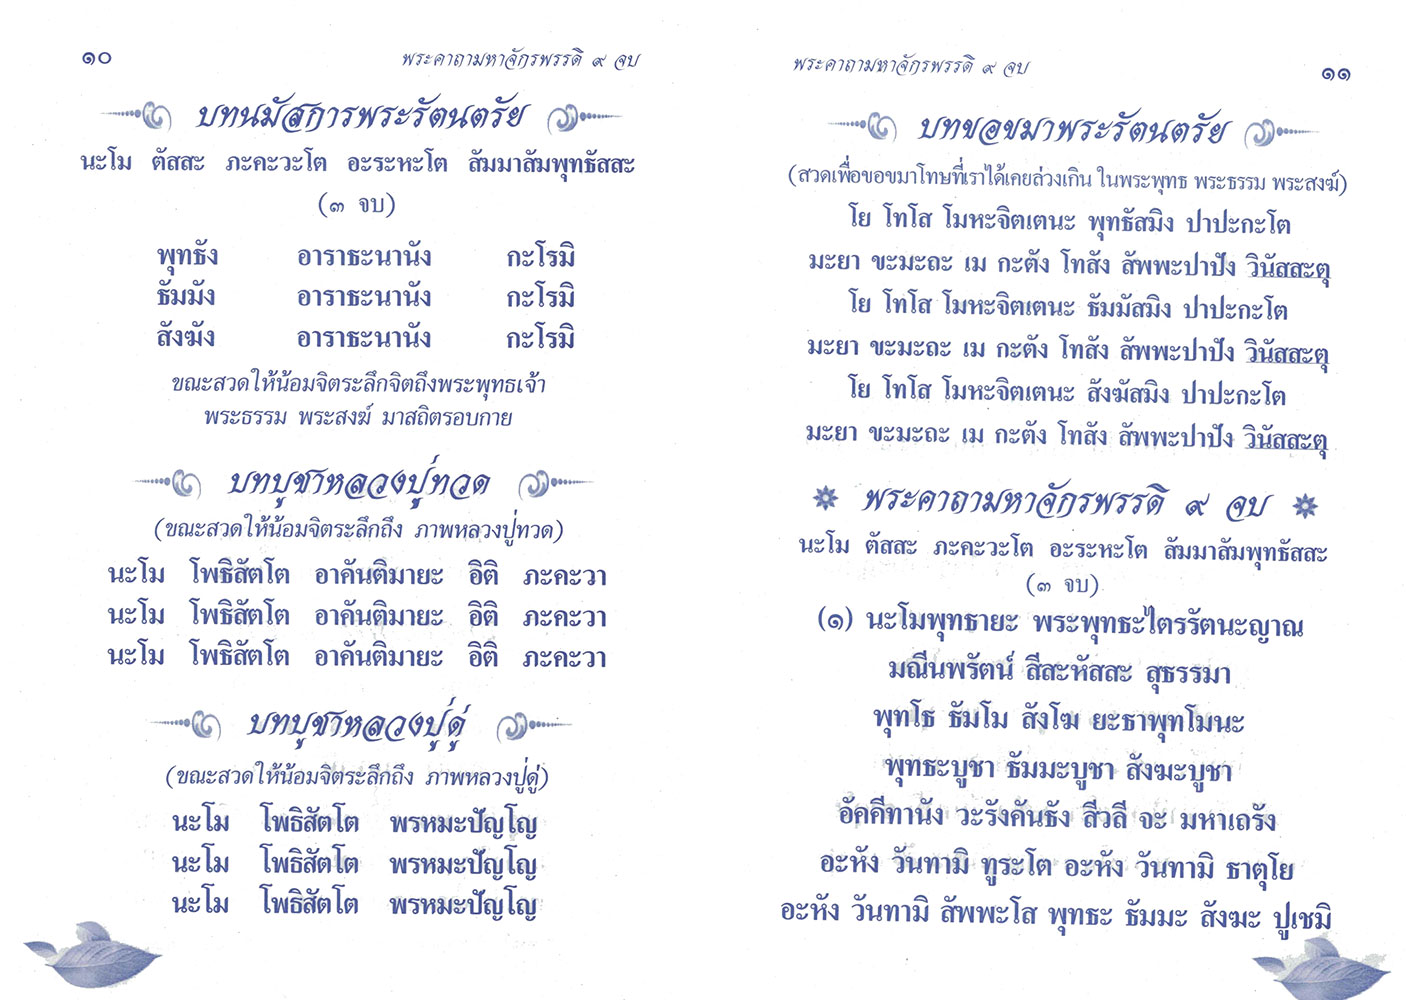 ๑๐
พระคาถามหาจักรพรรดิ ๙ จบ
บทนมัสการพระรัตนตรัย
นะโม ตัสสะ ภะคะวะโต อะระหะโต สัมมาสัมพุทธัสสะ
(๓ จบ)
พุทธัง อาราธะนานัง กะโรมิ
ธัมมัง อาราธะนานัง กะโรมิ
สังฆัง อาราธะนานัง กะโรมิ
ขณะสวดให้น้อมจิตระลึกจิตถึงพระพุทธเจ้า
พระธรรม พระสงฆ์ มาสถิตรอบกาย
บทบูชาหลวงปู่ทวด
(ขณะสวดให้น้อมจิตระลึกถึง ภาพหลวงปู่ทวด)
นะโม โพธิสัตโต อาคันติมายะ อิติ ภะคะวา
นะโม โพธิสัตโต อาคันติมายะ อิติ ภะคะวา
นะโม โพธิสัตโต อาคันติมายะ อิติ ภะคะวา
บทบูชาหลวงปู่ดู่
(ขณะสวดให้น้อมจิตระลึกถึง ภาพหลวงปู่ดู่)
นะโม โพธิสัตโต พรหมะปัญโญ
นะโม โพธิสัตโต พรหมะปัญโญ
นะโม โพธิสัตโต พรหมะปัญโญ
พระคาถามหาจักรพรรดิ ๙ จบ
๑๑
บทขอขมาพระรัตนตรัย
(สวดเพื่อขอขมาโทษที่เราได้เคยล่วงเกิน ในพระพุทธ พระธรรม พระสงฆ์)
โย โทโส โมหะจิตเตนะ พุทธัสมิง ปาปะกะโต
มะยา ขะมะถะ เม กะตัง โทสัง สัพพะปาปัง วินัสสะตุ
โย โทโส โมหะจิตเตนะ ธัมมัสมิง ปาปะกะโต
มะยา ขะมะถะ เม กะตัง โทสัง สัพพะปาปัง วินัสสะตุ
โย โทโส โมหะจิตเตนะ สังฆัสมิง ปาปะกะโต
มะยา ขะมะถะ เม กะตัง โทสัง สัพพะปาปัง วินัสสะตุ
พระคาถามหาจักรพรรดิ ๙ จบ
นะโม ตัสสะ ภะคะวะโต อะระหะโต สัมมาสัมพุทธัสสะ
(๓ จบ)
(๑) นะโมพุทธายะ พระพุทธะไตรรัตนะญาณ
มณีนพรัตน์ สีสะหัสสะ สุธรรมา
พุทโธ ธัมโม สังโฆ ยะธาพุทโมนะ
พุทธะบูชา ธัมมะบูชา สังฆะบูชา
อัคคีทานัง วะรังคันธัง สีวลี จะ มหาเถรัง
อะหัง วันทามิ ทูระโต อะหัง วันทามิ ธาตุโย
อะหัง วันทามิ สัพพะโส พุทธะ ธัมมะ สังฆะ ปูเชมิ